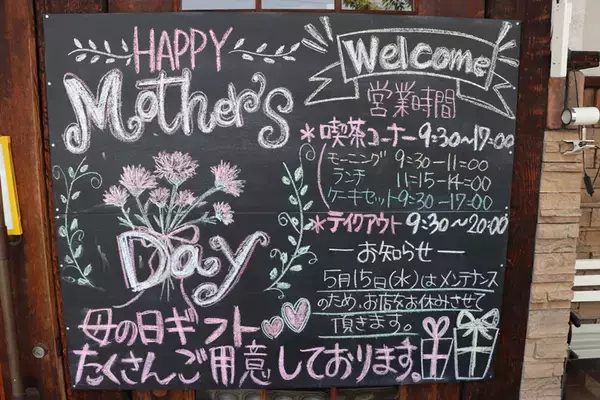 HAPPY
Mother's
Day
母の日ギフト
たくさんご用意しております。
Welcome
営業時間
*喫茶コーナー 9:30~17:00
モーニング 9:30-11:00
ランチ 11:15-14:00
ケーキセット 9:30-17:00
*テイクアウト 9:30~20:00
—お知らせ—
5月15日(水)はメンテナンス
のため、お店をお休みさせて
頂きます。